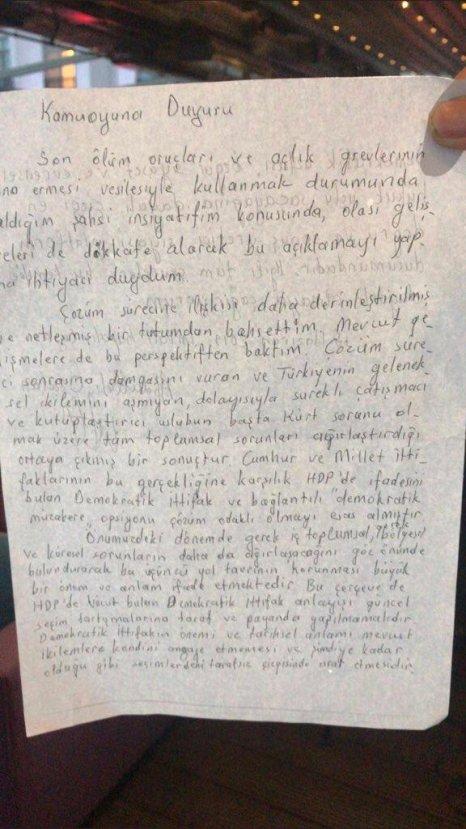 Kamuoyuna Duyuru
Son ölüm oruçları ve açlık grevlerinin
na ermesi vesilesiyle kullanmak durumunda
aldığım şahsi insiyatifim konusunda, olası geliş
meleri de dikkate alarak bu açıklamayı yap-
ma ihtiyacı duydum.
Çözüm sürecine ilişkin daha derinleştirilmiş
ve netleşmiş bir tutumdan bahsettim. Mevcut ge-
lişmelere de bu perspektiften baktım. Çözüm süre-
ci sonrasına damgasını vuran ve Türkiyenin gelenek-
sel ikilemini aşmıyan, dolayısıyla sürekli çatışmacı
ve kutuplaştırıcı uslubun başta Kürt sorunu ol-
mak üzere tüm toplumsal sorunları ağırlaştırdığı
ortaya çıkmış bir sonuçtur. Cumhur ve Millet itti-
faklarının bu gerçekliğine karşılık HDP'de ifadesini
bulan Demokratik ittifak ve bağlantılı "demokratik
müzakere" opsiyonu çözüm odaklı olmayı esas almıştır
Önümüzdeki dönemde gerek iç toplumsal, gerek bölgesel
ve küresel sorunların daha da ağırlaşacağını göz önünde
bulundurarak bu üçüncü yol tavrının korunması büyük
bir önem ve anlam ifade etmektedir. Bu çerçeve de
HDP'de vücut bulan Demokratik ittifak anlayışı güncel
seçim tartışmalarına taraf ve payanda yapılmamalıdır.
Demokratik ittifakın önemi ve tarihsel anlamı mevcut
ikilemlere kendini angaje etmemesi ve şimdiye kadar
olduğu gibi seçimlerdeki tarafsız çizgisinde ısrar etmesidir.